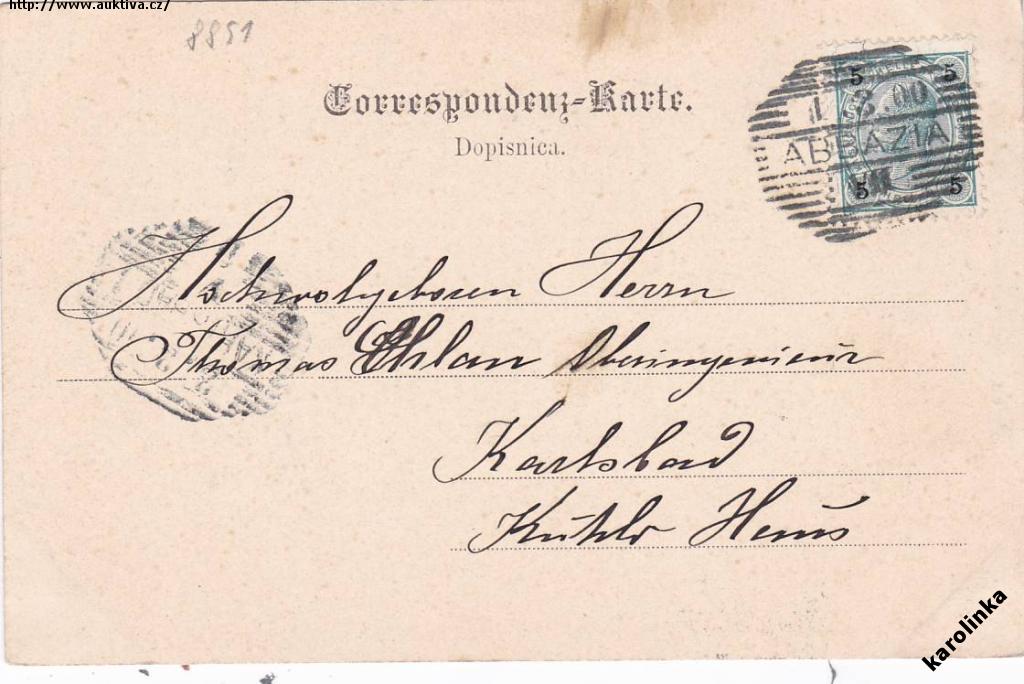 http://www.auktiva.cz/
8851
Correspondenz-Karte.
Dopisnica.
5 5
1 3 00
ABBAZIA
5 5
Hochwolgeboren Herrn
Thomas Ehlan Oberingenieur
Karlsbad
Haus
karolinka